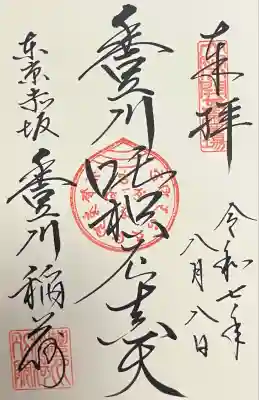 来拝
令和七年
八月八日
豊川吒枳尼真天
東京赤坂
豊川稲荷